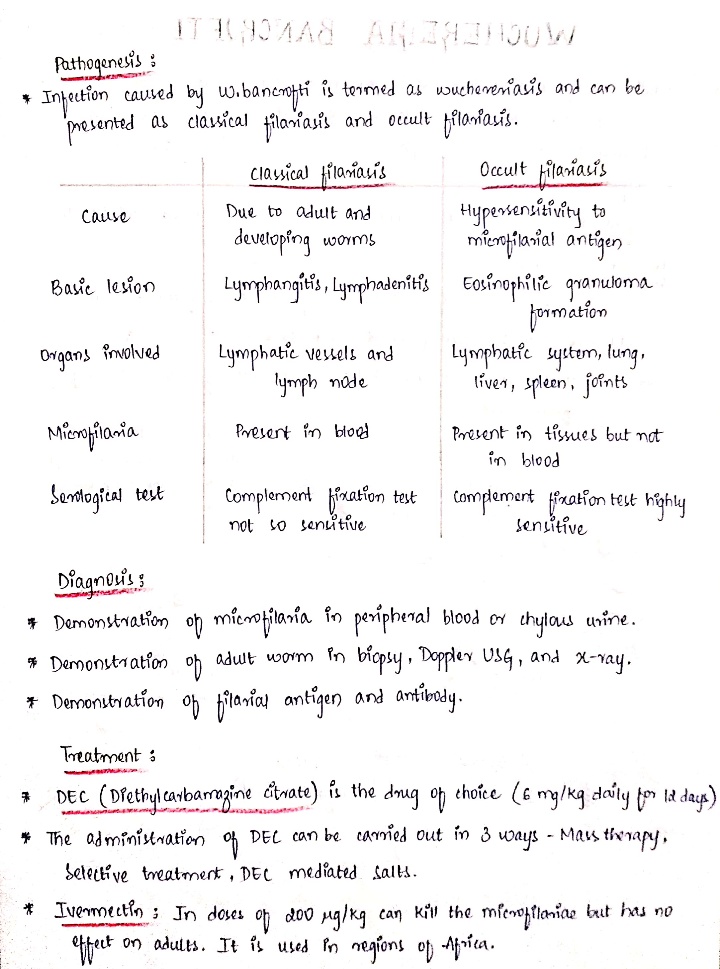 WUCHERERIA BANCROFTI
Pathogenesis :
* Infection caused by W.bancrofti is termed as wuchereriasis and can be
presented as classical filariasis and occult filariasis.
Classical filariasis Occult filariasis
Cause Due to adult and Hypersensitivity to
developing worms microfilarial antigen
Basic lesion Lymphangitis, Lymphadenitis Eosinophilic granuloma
formation
Organs involved Lymphatic vessels and Lymphatic system, lung,
lymph node liver, spleen, joints
Microfilaria Present in blood Present in tissues but not
in blood
Serological test Complement fixation test Complement fixation test highly
not so sensitive sensitive
Diagnosis :
* Demonstration of microfilaria in peripheral blood or chylous urine.
* Demonstration of adult worm in biopsy, Doppler USG, and x-ray.
* Demonstration of filarial antigen and antibody.
Treatment :
* DEC (Diethylcarbamazine citrate) is the drug of choice (6 mg/kg daily for 12 days)
* The administration of DEC can be carried out in 3 ways - Mass therapy,
Selective treatment, DEC mediated salts.
* Ivermectin : In doses of 200 µg/kg can kill the microfilariae but has no
effect on adults. It is used in regions of Africa.